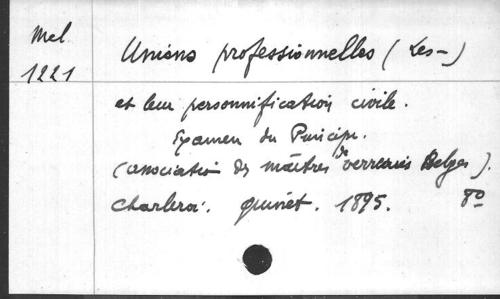 Mel
1221
Unions professionnelles (Les-)
et leur personnification civile.
Examen du Principe.
(association des maîtres de verreries Belges).
Charleroi. Quinet. 1895. 8°